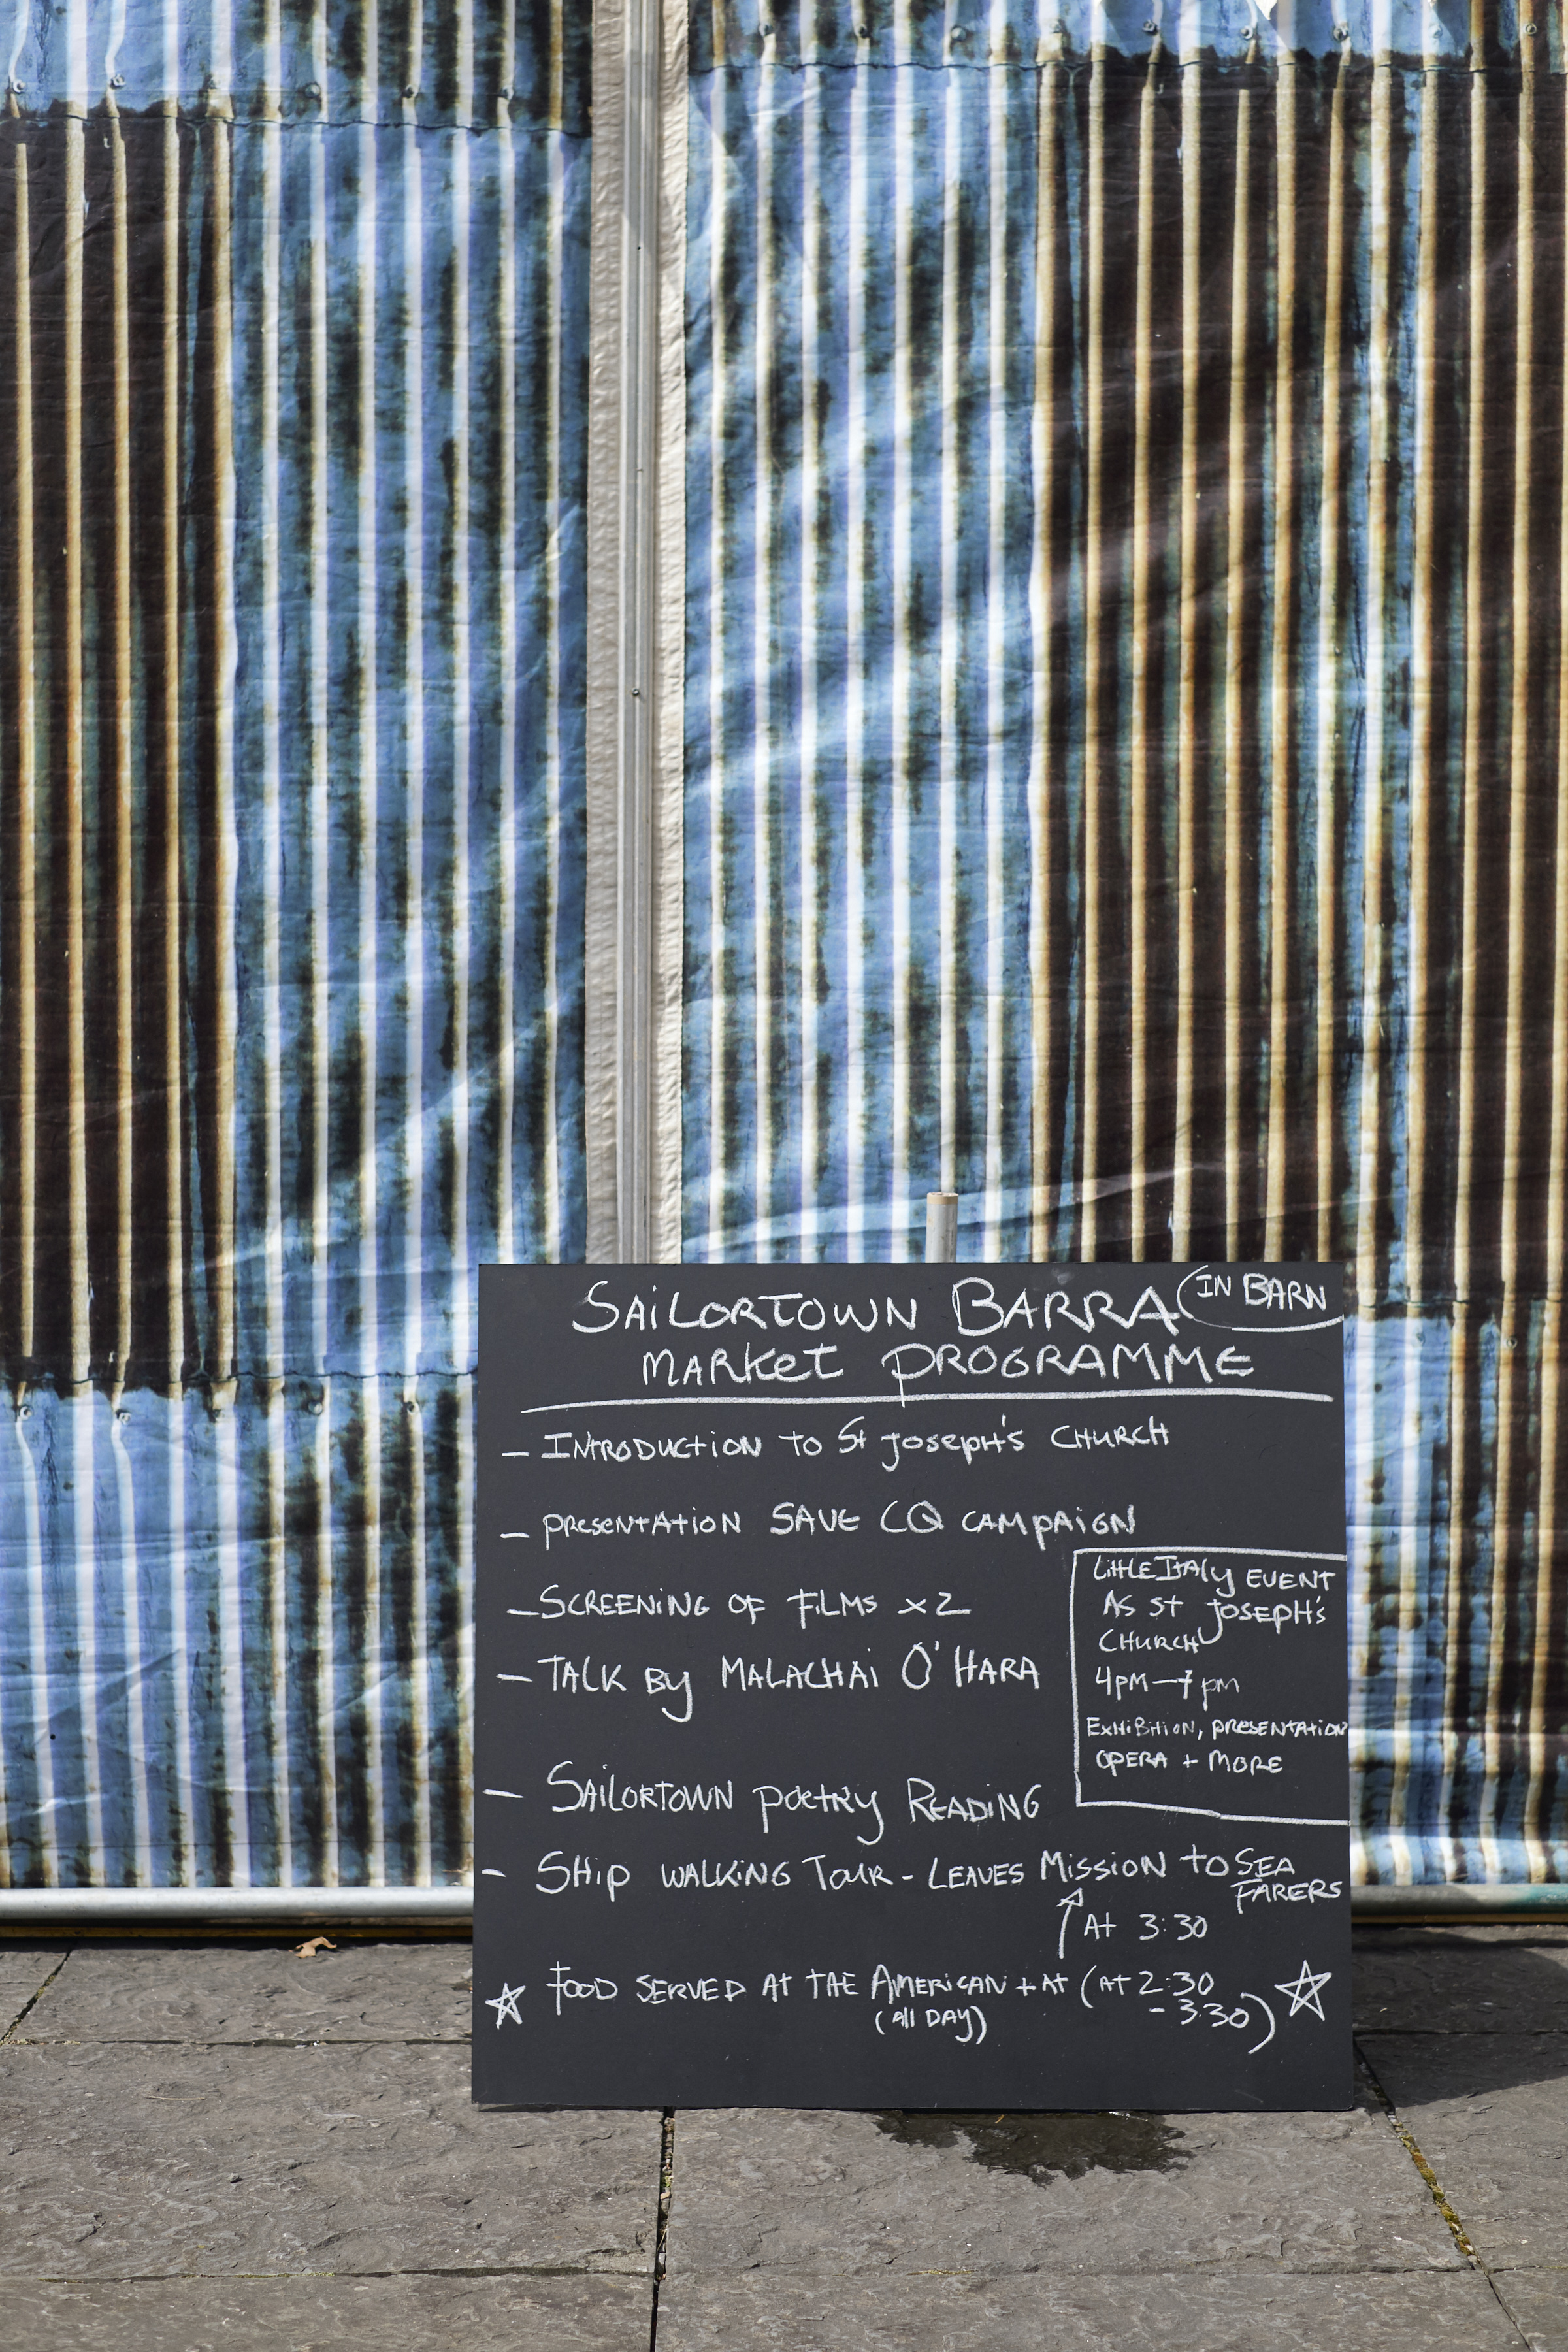 SAILORTOWN BARRA (IN BARN
MARKET PROGRAMME
– INTRODUCTION TO St JOSEPH'S CHURCH
– PRESENTATION SAVE CQ CAMPAIGN
– SCREENING OF FILMS x2
– TALK By MALACHAI O'HARA
LittLE ITALy EVENT
AS St JOSEPH'S
CHURCH
4PM – 7pm
EXHIBITION, PRESENTATION
OPERA + MORE
– SAILORTOWN POETRY READING
– SHIP WALKING TOUR - LEAVES MISSION TO SEA
FARERS
At 3:30
☆ FOOD SERVED AT THE AMERICAN + AT (AT 2:30 ☆
- 3.30)
(All DAY)